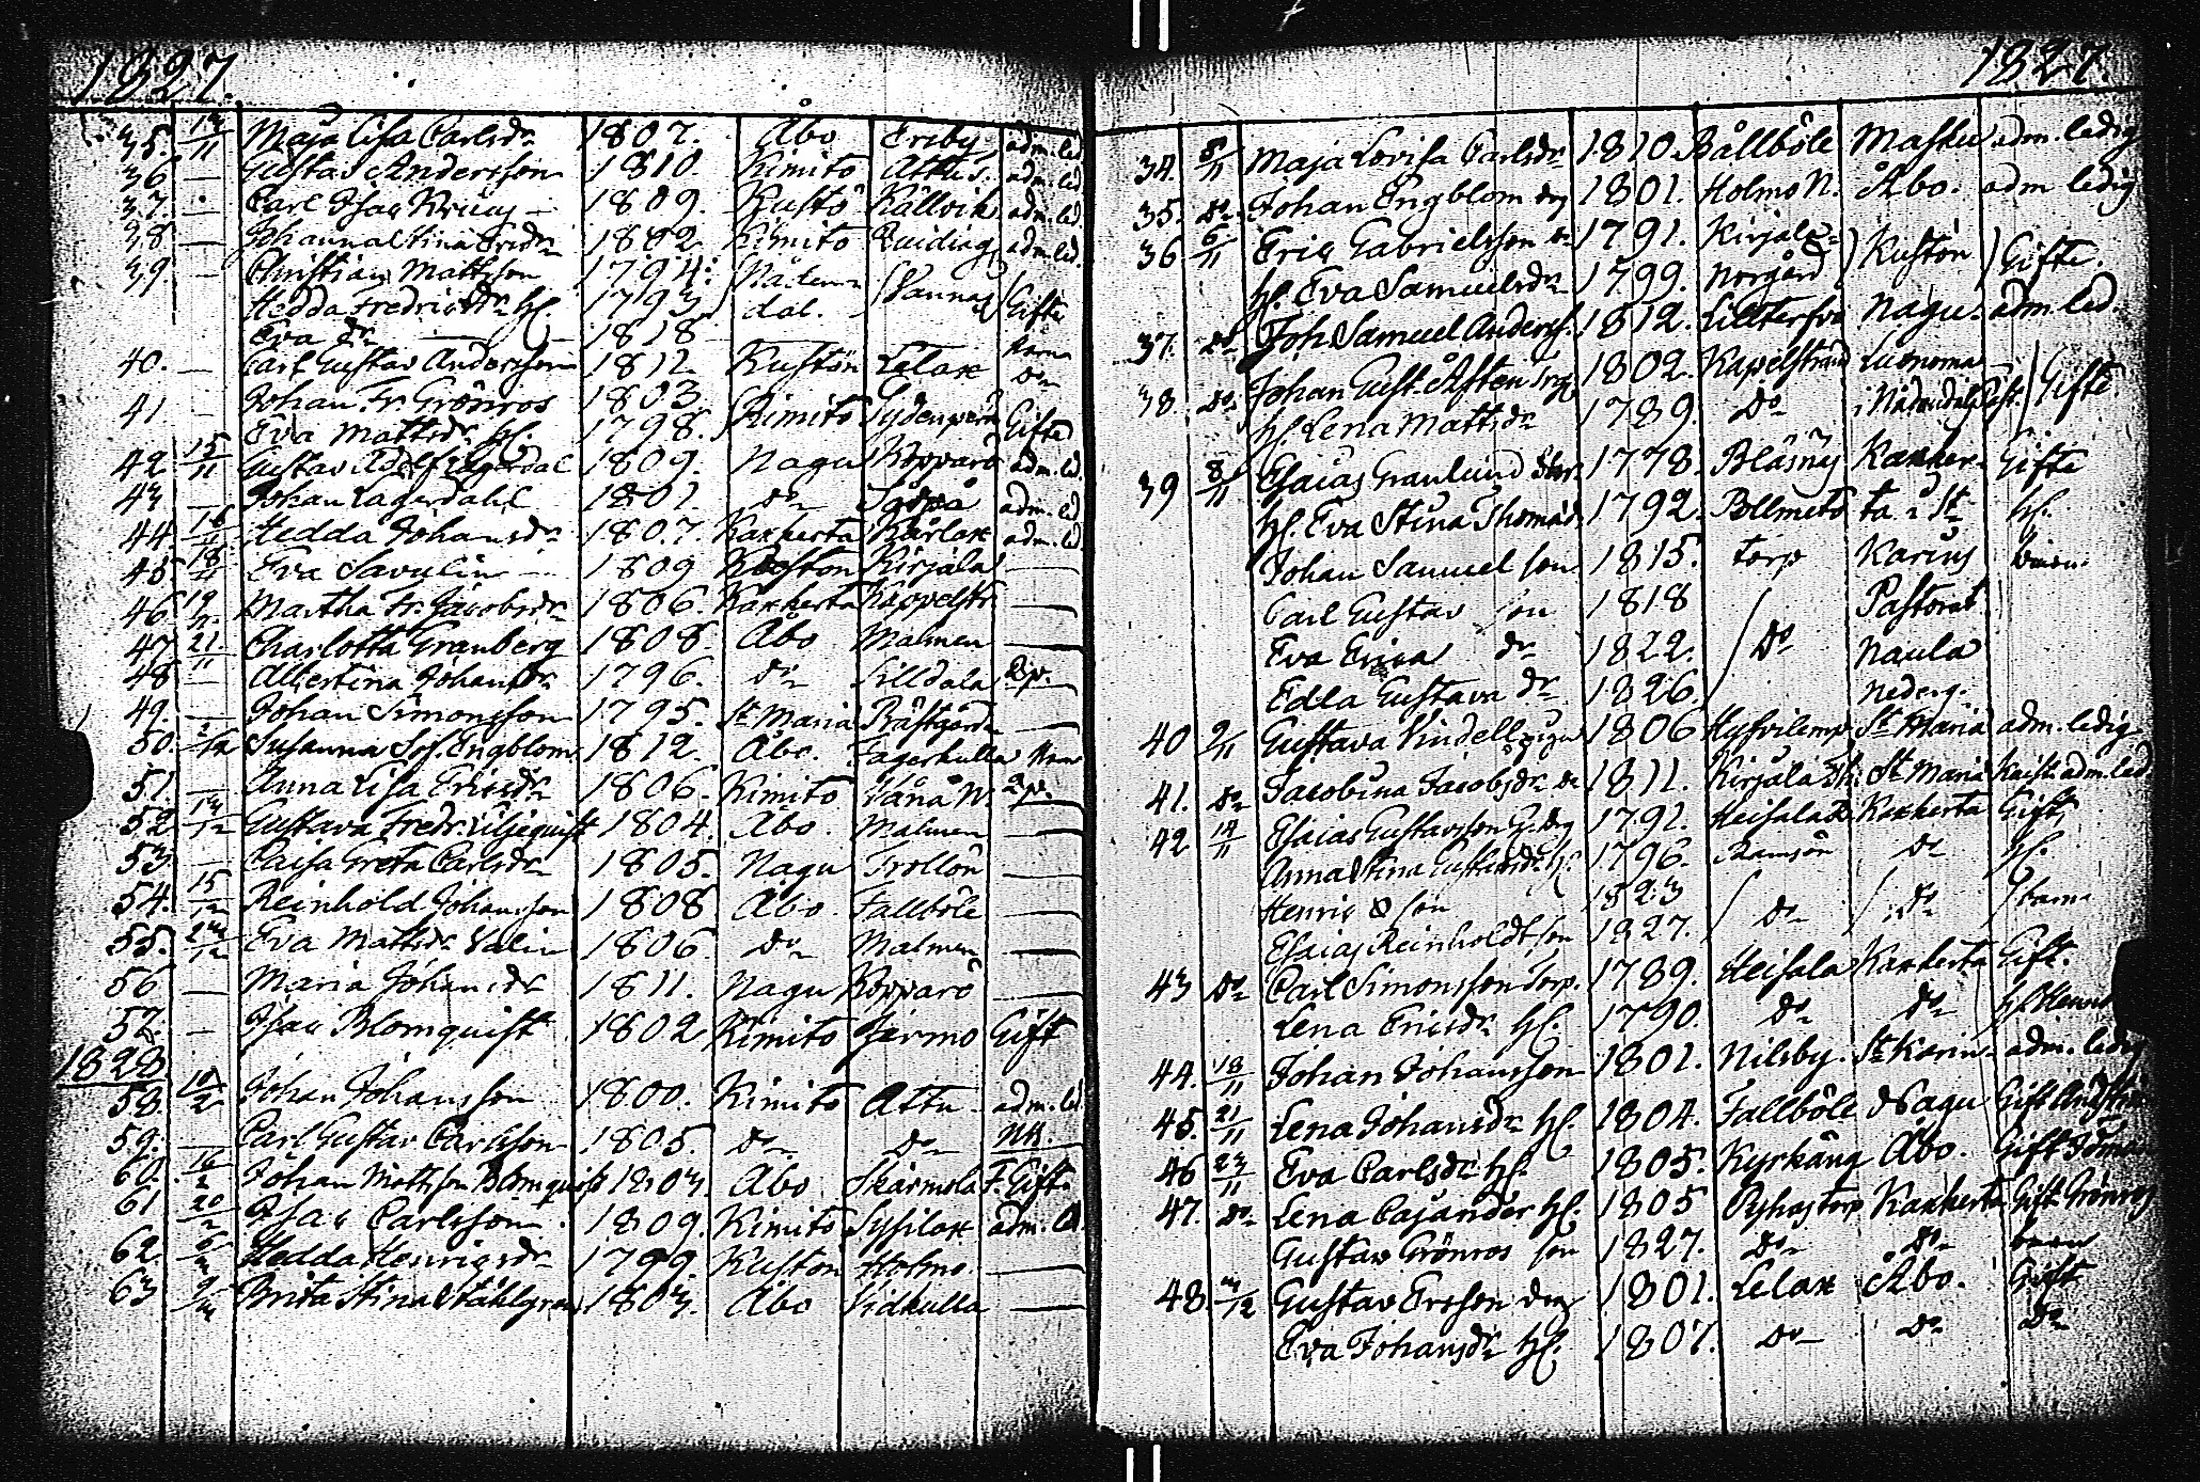 1827.
35. 13/11 Maja Lisa Carlsdr 1807. Åbo Ersby adm. led.
36 — Gustav Andersson 1810. Kimito Attu adm. led.
37. — Carl Isac 1809. Kustö Källvik adm. led.
38 — Johanna Stina Ersdr 1802 Kimito adm. led.
39. — Christian Mattsson 1794. Nåden- Gifte
Hedda Fredricsdr hf. 1793 dal.
Eva dr — 1818 — barn
40. — Carl Gustav Andersson 1812. Kustön Lelax Do
41 — Johan Fr. Grönros 1803 Kimito Gifte
Eva Mattsdr hf. 1798.
42 15/11 Gustav Adolf Lagerdal 1809. Nagu Kopparö adm. led.
43 — Johan Lagerdahl 1801. Do adm. led
44 16/11 Hedda Johansdr 1807. Kakskerta Kårlax adm. led
45. 18/11 Eva Savulin — 1809 Kustön Kirjala —
46. 19/11 Martha Fr. Jacobsdr 1806. Kakskerta Kappelstr. —
47 21/11 Charlotta Granberg 1808. Åbo Malmen —
48 — Albertina Johansdr 1796. Do Lilldala
49. — Johan Simonsson 1795. St Maria Prästgård —
50. 2/12 Susanna Sof. Engblom 1812. Åbo. Fagerkulla
51. — Anna Lisa Ericsdr 1806. Kimito
52 13/12 Gustava Fredr. Liljequist 1804. Åbo. Malmen —
53. — Caisa Greta Carlsdr 1805. Nagu Trollön —
54. 15/12 Reinhold Johansson 1808 Åbo. Fallböle —
55. 23/12 Eva Mattsdr Valin 1806 Do Malmen —
56 — Maria Johansdr 1811. Nagu Kopparö —
57. — Isac Blomquist 1802 Kimito Jermo Gift
1828
58. 10/2 Johan Johansson 1800. Kimito Attu adm. led.
59. — Carl Gustav Carlsson 1805. Do Do
60. 16/2 Johan Mattsson Blomquist 1803. Åbo Skärmola F. Gift.
61 20/2 Isac Carlsson 1809. Kimito Sysilax adm. led.
62. 6/3 Hedda Henricsdr 1799. Kustön Holmo —
63 9/3 Brita Stina Ståhlgren 1803. Åbo Vidkulla —
1827.
34. 5/11 Maja Lovisa Carlsdr 1810. Bållböle Masku adm. ledig
35. Do Johan Engblom drg 1801. Holmo N. Åbo. adm ledig
36. 6/11 Eric Gabrielsson 1791. Kirjala Kustön Gifte.
hf. Eva Samuelsdr 1799. Norgård
37. Do Joh Samuel Anderss. 1812. Nagu. adm. led.
38. Do Johan Gust. 1802. Kapelstrand Luonnoma Gifte
hf. Lena Mattsdr 1789. Do
39 8/11 Esaias Granlund 1778. Bläsnäs Kaksker- Gifte
hf. Eva Stina Thomasd. 1792. ta i St hf.
Johan Samuel son 1815. torp Karins
Carl Gustav son 1818 Pastorat
Eva Erica dr 1822. Do Naula
Edla Gustava dr 1826. Nederg.
40 9/11 Gustava Vindell piga 1806 St Maria adm. ledig
41. Do Jacobina Jacobsdr 1811. Kirjala St Maria adm. led.
42 14/11 Esaias Gustavsson 1791. Heisala Kakskerta Gift
Anna Stina Gustavsdr hf. 1796. Ramsön Do hf.
Henric son 1823 Do Do barn
Esaias Reinholdt son 1827.
43 Do Carl Simonsson Torp. 1789. Heisala Kakskerta Gift.
Lena Ericsdr hf. 1790. Do Do hf.
44. 18/11 Johan Johansson 1801. Nilsby. St Karin adm. ledig
45. 21/11 Lena Johansdr hf. 1804. Fallböle Nagu Gift
46 23/11 Eva Carlsdr hf. 1805. Kyrkäng Åbo. Gift
47. Do Lena Cajander hf. 1805 Kakskerta Gift Grönros
Gustav Grönros son 1827. Do Do barn
48 3/12 Gustav Ersson drg 1801. Lelax Åbo. Gift
Eva Johansdr hf. 1807. Do Do Do